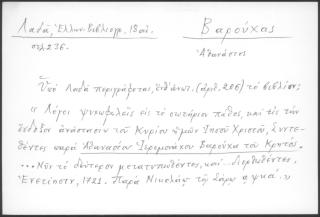 Λαδᾶ, Ἑλλην. Βιβλιογρ. 18 αἰ.
Βαρούχας
σελ. 236.
Ἀθανάσιος
Ὑπὸ Λαδᾶ περιγράφεται, ἐνθ' ἀνωτ. (ἀριθ. 206) τὸ βιβλίον:
« Λόγοι ψυχωφελεῖς εἰς τὸ σωτήριον πάθος, καὶ εἰς τὴν
ἔνδοξον ἀνάστασιν τοῦ Κυρίου ἡμῶν Ἰησοῦ Χριστοῦ, Συντε-
θέντες παρὰ Ἀθανασίου Ἱερομονάχου Βαρούχα τοῦ Κρητός.
... Νῦν τὸ δεύτερον μετατυπωθέντες, καὶ ... Διορθωθέντες.
Ἐνετίησιν, 1721. Παρὰ Νικολάῳ τῷ Σάρῳ αψκα'. »